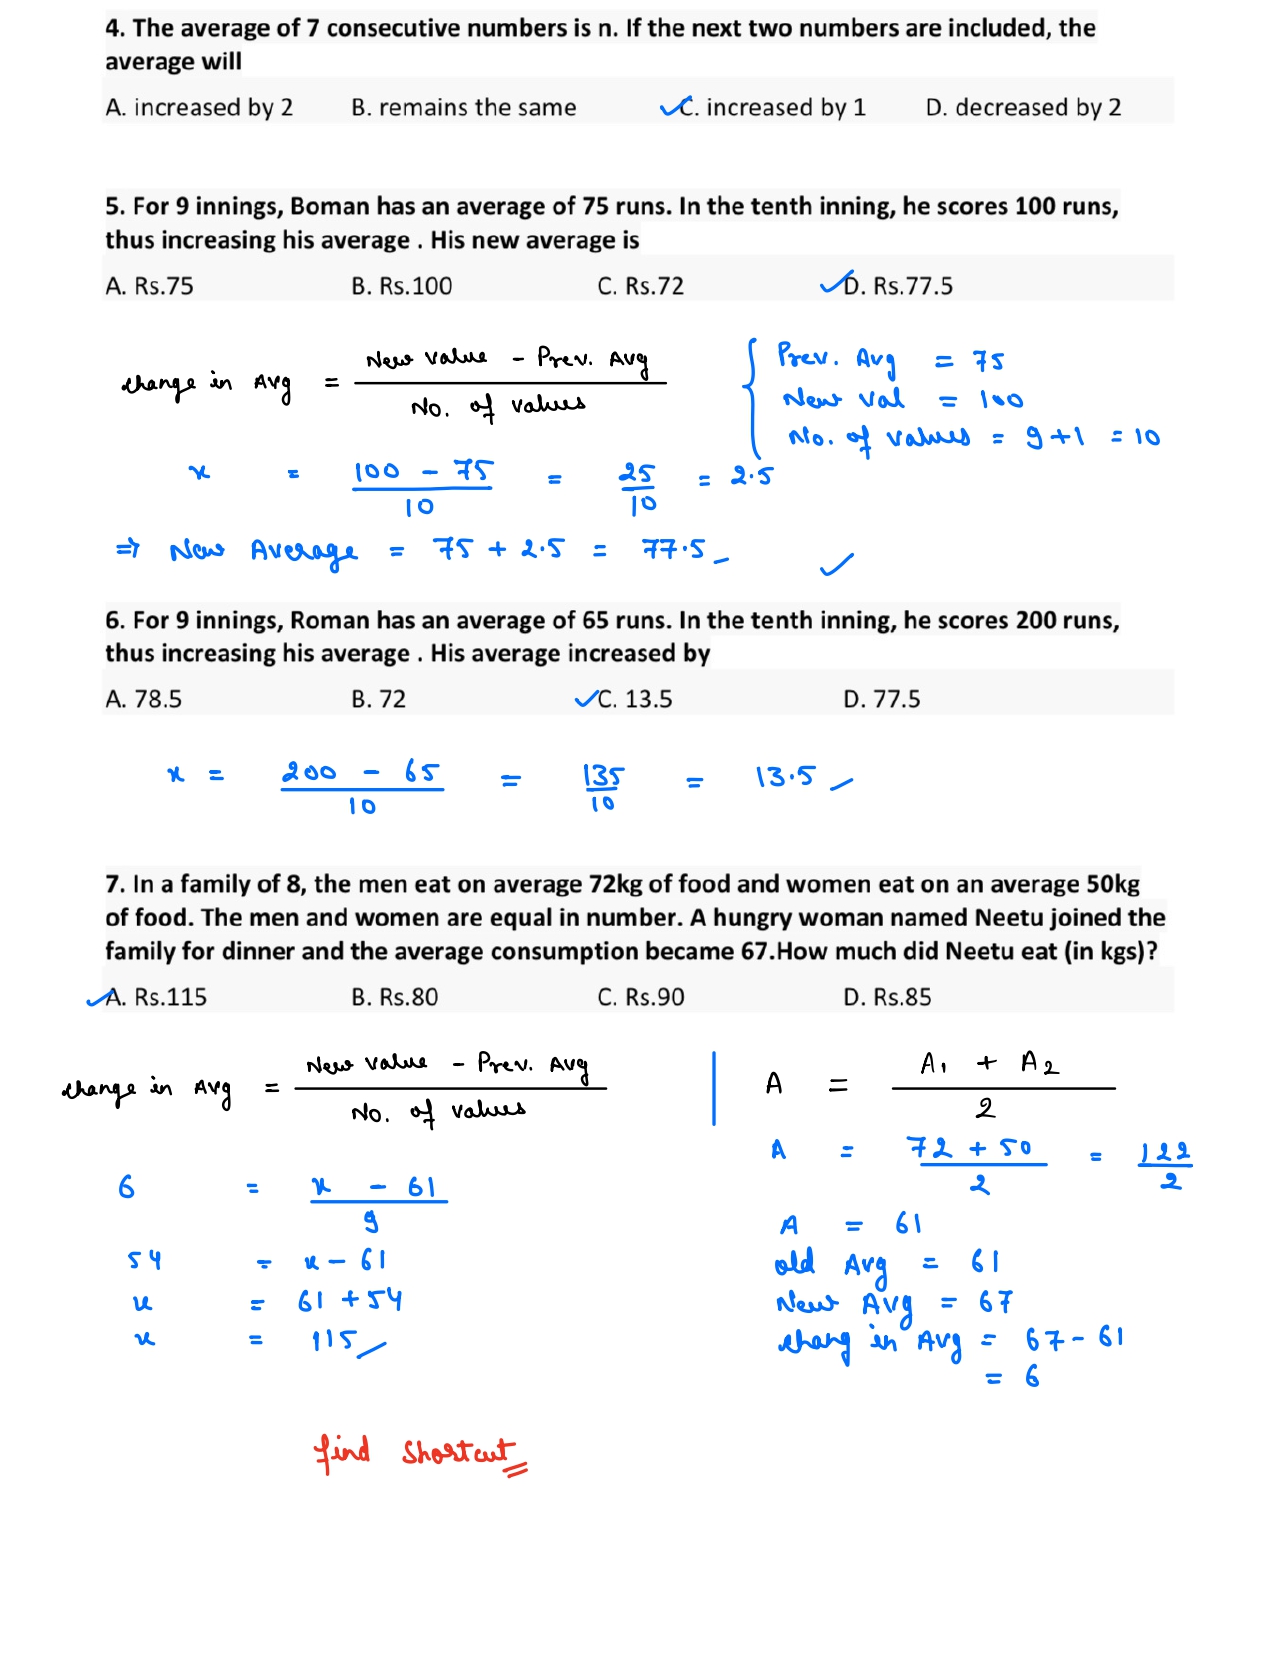 4. The average of 7 consecutive numbers is n. If the next two numbers are included, the
average will
A. increased by 2 B. remains the same ✓C. increased by 1 D. decreased by 2
5. For 9 innings, Boman has an average of 75 runs. In the tenth inning, he scores 100 runs,
thus increasing his average . His new average is
A. Rs.75 B. Rs.100 C. Rs.72 ✓D. Rs.77.5
change in Avg = (New value - Prev. Avg) / (No. of values)
Prev. Avg = 75
New val = 100
No. of values = 9+1 = 10
x = (100 - 75) / 10 = 25/10 = 2.5
⇒ New Average = 75 + 2.5 = 77.5
✓
6. For 9 innings, Roman has an average of 65 runs. In the tenth inning, he scores 200 runs,
thus increasing his average . His average increased by
A. 78.5 B. 72 ✓C. 13.5 D. 77.5
x = (200 - 65) / 10 = 135/10 = 13.5
7. In a family of 8, the men eat on average 72kg of food and women eat on an average 50kg
of food. The men and women are equal in number. A hungry woman named Neetu joined the
family for dinner and the average consumption became 67.How much did Neetu eat (in kgs)?
✓A. Rs.115 B. Rs.80 C. Rs.90 D. Rs.85
change in Avg = (New value - Prev. Avg) / (No. of values)
6 = (x - 61) / 9
54 = x - 61
x = 61 + 54
x = 115
A = (A1 + A2) / 2
A = (72 + 50) / 2 = 122/2
A = 61
old Avg = 61
New Avg = 67
chang in Avg = 67 - 61
= 6
find Shortcut